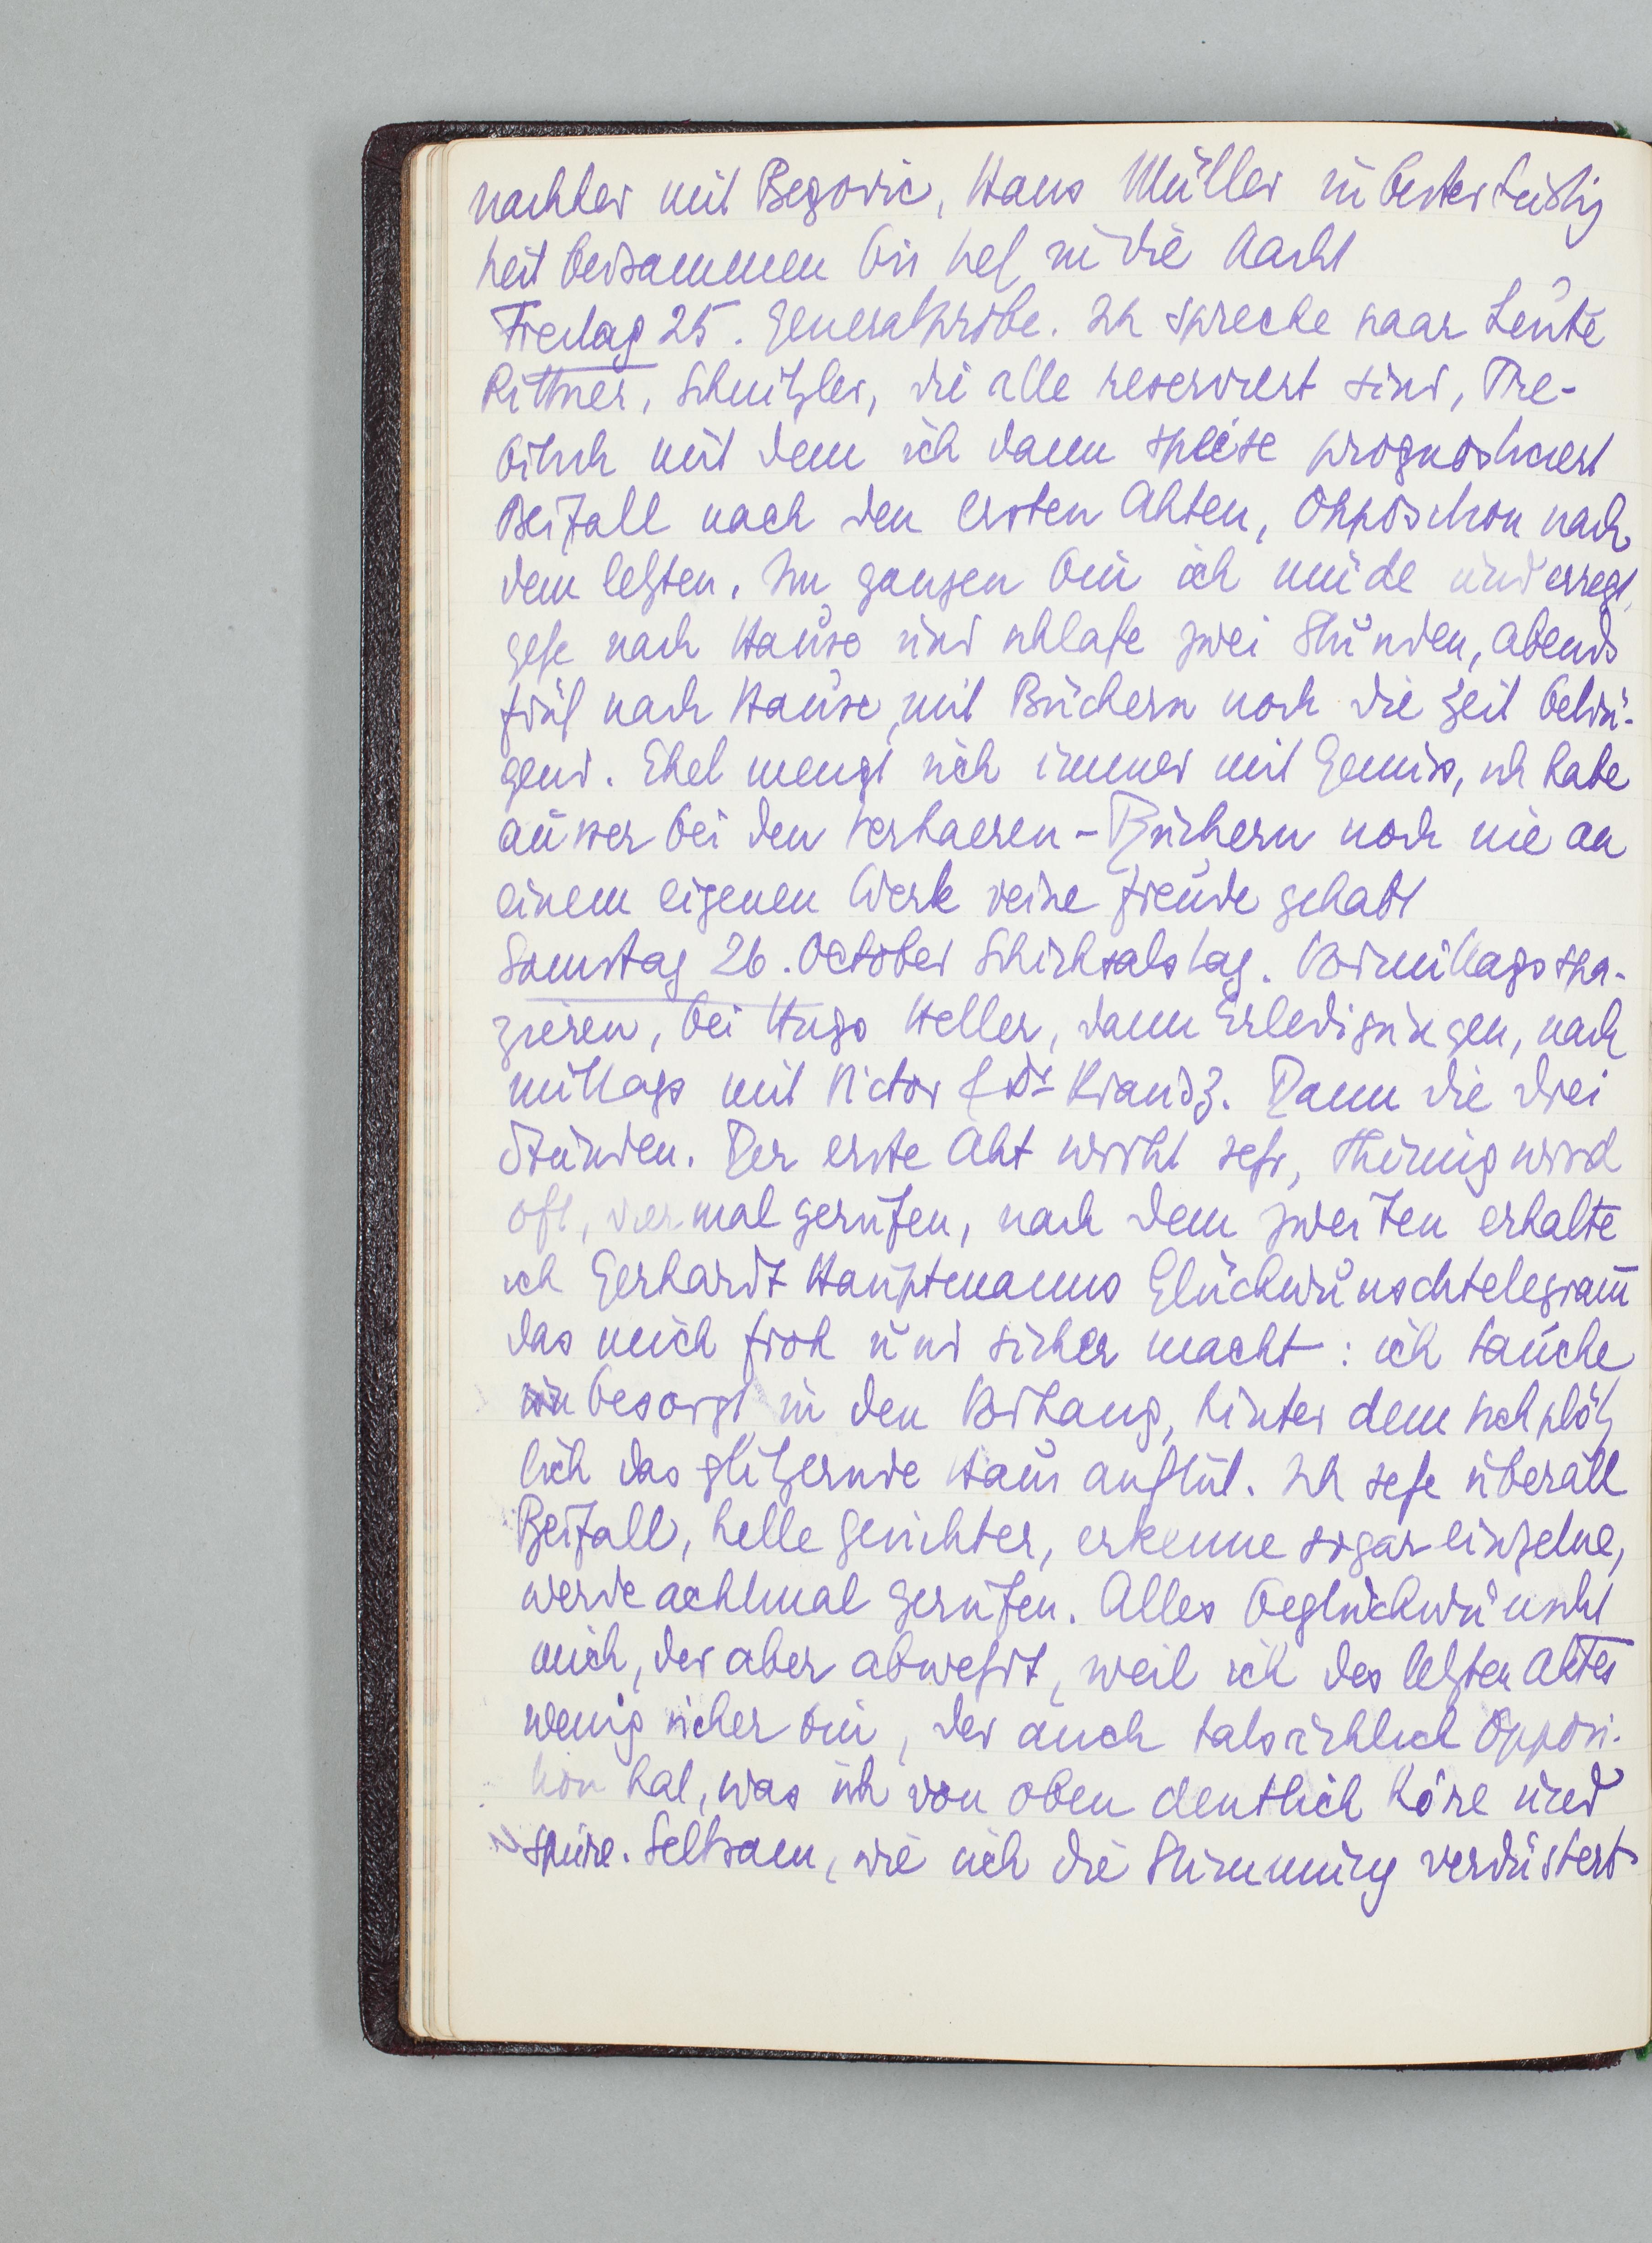 nachher mit Begovic, Hans Müller in bester Lustig
keit beisammen bis tief in die Nacht
Freitag 25. Generalprobe. Ich spreche paar Leute
Rittner, Schnitzler, die alle reserviert sind, Tre-
bitsch mit dem ich dann speise prognosticiert
Beifall nach den ersten Akten, Opposition nach
dem letzten. Im ganzen bin ich müde und erregt,
gehe nach Hause und schlafe zwei Stunden, abends
früh nach Hause, mit Büchern noch die Zeit betrü-
gend. Ekel mengt sich immer mit Genuss, ich habe
ausser bei den Verhaeren-Büchern noch nie an
einem eigenen Werk reine Freude gehabt
Samstag 26. October Schicksalstag. Vormittags spa-
zieren, bei Hugo Heller, dann Erledigungen, nach
mittags mit Victor & Dr Kransz. Dann die drei
Stunden. Der erste Akt wirkt sehr, Thimig wird
oft, viermal gerufen, nach dem zweiten erhalte
ich Gerhardt Hauptmanns Glückwunschtelegram̄
das mich froh und sicher macht: ich tauche
unbesorgt in den Vorhang, hinter dem sich plötz
lich das glitzernde Haus auftut. Ich sehe überall
Beifall, helle Gesichter, erkenne sogar einzelne,
werde achtmal gerufen. Alles beglückwünscht
mich, der aber abwehrt, weil ich des letzten Aktes
wenig sicher bin, der auch tatsächlich Opposi-
tion hat, was ich von oben deutlich höre und
spüre. Seltsam, wie sich die Stimmung verdüstert